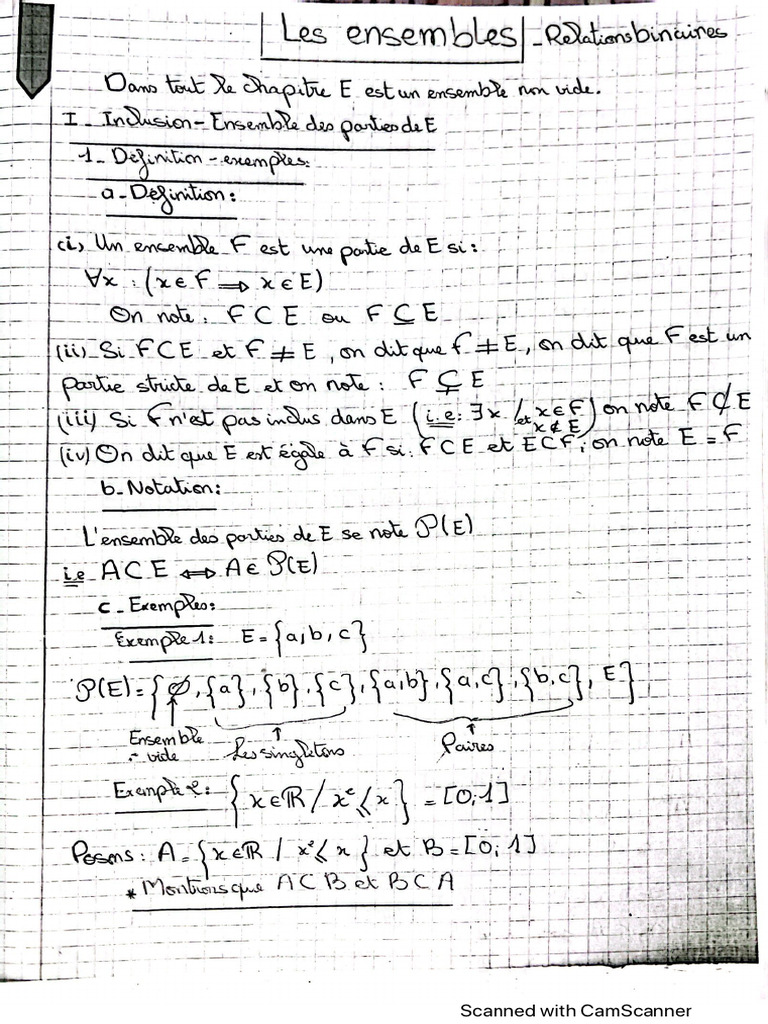 Les ensembles - Relations binaires
Dans tout le chapitre E est un ensemble non vide.
I - Inclusion - Ensemble des parties de E
1 - Définition - exemples:
a - Définition:
(i) Un ensemble F est une partie de E si:
∀x : (x ∈ F ⟹ x ∈ E)
On note: F ⊂ E ou F ⊆ E
(ii) Si F ⊂ E et F ≠ E, on dit que f ≠ E, on dit que F est un
partie stricte de E et on note: F ⊊ E
(iii) Si F n'est pas inclus dans E (i.e: ∃x / x ∈ F et x ∉ E) on note F ⊄ E
(iv) On dit que E est égale à F si: F ⊂ E et E ⊂ F, on note E = F
b - Notation:
L'ensemble des parties de E se note P(E)
i.e A ⊂ E ⟺ A ∈ P(E)
c - Exemples:
Exemple 1: E = {a, b, c}
P(E) = {∅, {a}, {b}, {c}, {a,b}, {a,c}, {b,c}, E}
Ensemble vide Les singletons Paires
Exemple 2: {x ∈ ℝ / x² ⩽ x} = [0; 1]
Posons: A = {x ∈ ℝ / x² ⩽ x} et B = [0; 1]
* Montrons que A ⊂ B et B ⊂ A
Scanned with CamScanner